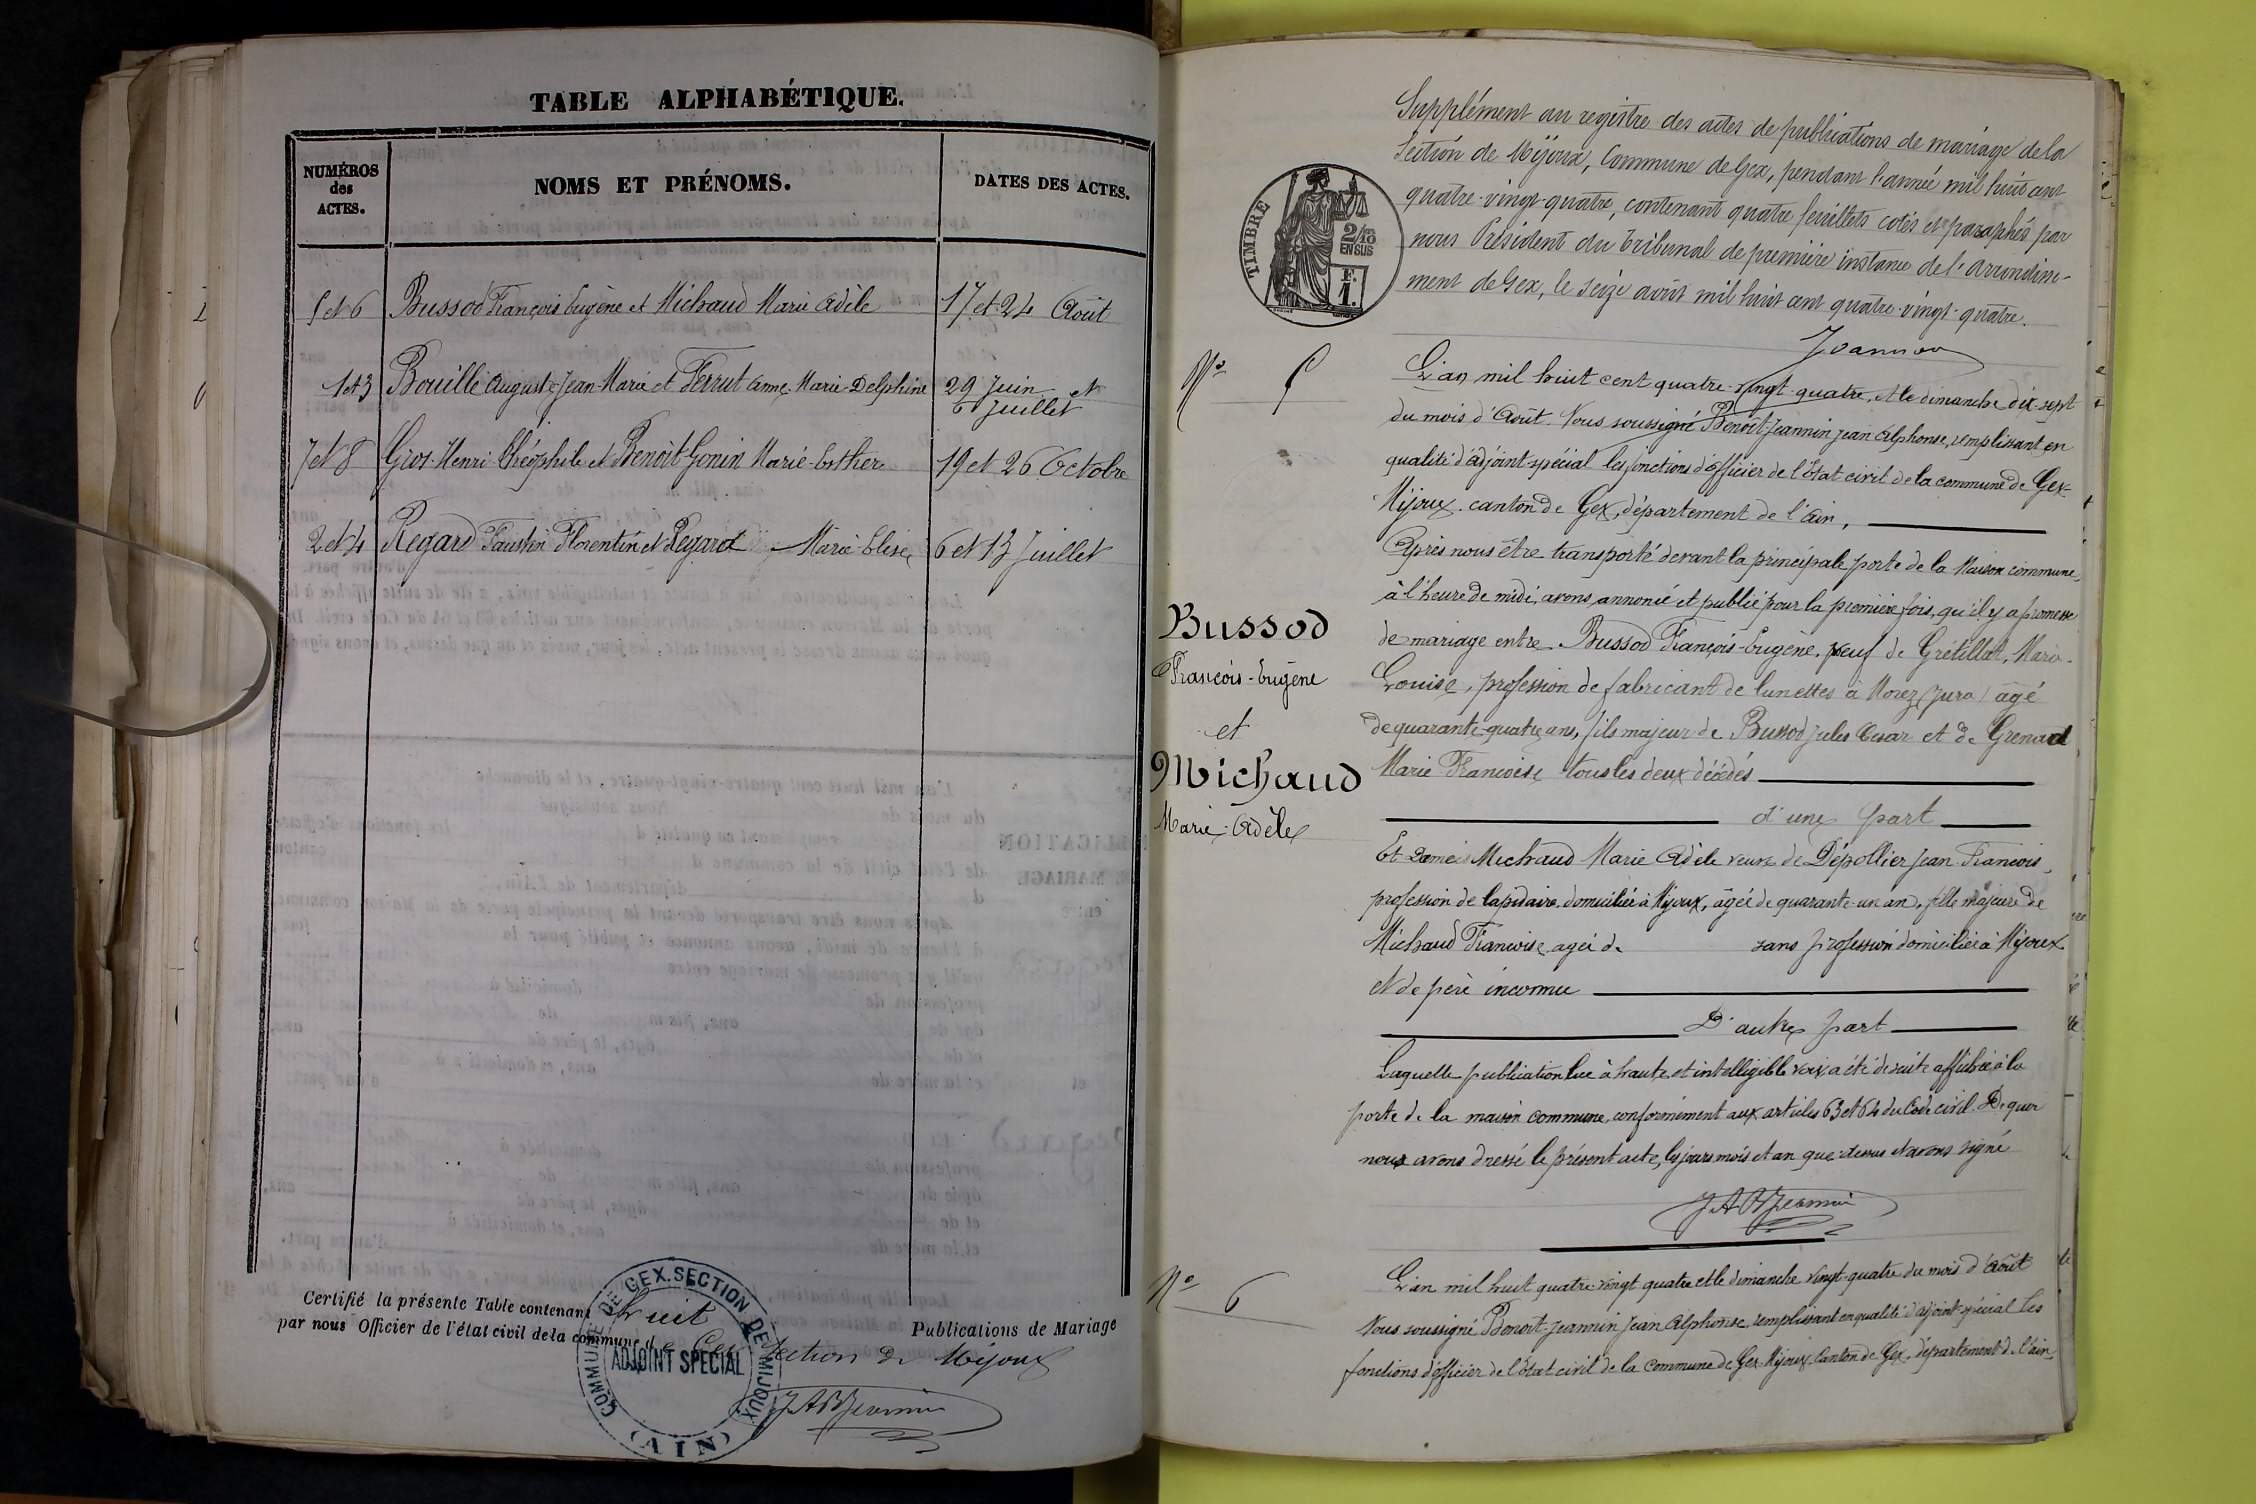 TABLE ALPHABÉTIQUE.
NUMÉROS
des
ACTES.
NOMS ET PRÉNOMS.
DATES DES ACTES.
5 et 6 Bussod François Eugène et Michaud Marie Adèle 17 et 24 Août
1 et 3 Bouillé Auguste Jean-Marie et Ferrut Anne Marie-Delphine 29 Juin et
6 Juillet
7 et 8 Gros-Henri Théophile et Benoit-Gonin Marie-Esther 19 et 26 Octobre
2 et 4 Regard Faustin Florentin et Regard Marie-Elise 6 et 13 Juillet
Certifié la présente Table contenant huit Publications de Mariage
par nous Officier de l'état civil de la commune de Gex Section de Mijoux
COMMUNE DE GEX. SECTION DE MIJOUX
ADJOINT SPÉCIAL
(AIN)
Supplément au registre des actes de publications de mariage de la
Section de Mijoux, Commune de Gex, pendant l'année mil huit cent
quatre-vingt-quatre, contenant quatre feuillets cotés et paraphés par
nous Président du Tribunal de première instance de l'arrondisse-
ment de Gex, le seize août mil huit cent quatre-vingt-quatre.
TIMBRE
2/10
EN SUS
E.
1.
No 5
L'an mil huit cent quatre-vingt-quatre, et le dimanche dix-sept
du mois d'Août. Nous soussigné Benoit-Jeannin Jean Alphonse, remplissant en
qualité d'adjoint-spécial les fonctions d'officier de l'État civil de la commune de Gex-
Mijoux. canton de Gex, département de l'Ain,
Après nous être transporté devant la principale porte de la Maison commune,
à l'heure de midi, avons annoncé et publié pour la première fois, qu'il y a promesse
de mariage entre Bussod François-Eugène, veuf de Grétillat, Marie-
Louise, profession de fabricant de lunettes à Morez (Jura) âgé
de quarante-quatre ans, fils majeur de Bussod Jules César et de Grenard
Marie Françoise tous les deux décédés
d'une part
Bussod
François-Eugène
et
Michaud
Marie-Adèle
Et Michaud Marie Adèle veuve de Dépollier Jean-François,
profession de lapidaire, domiciliée à Mijoux, âgée de quarante-un an, fille majeure de
Michaud Françoise agée de sans profession domiciliée à Mijoux
et de père inconnu
D'autre part
Laquelle publication lue à haute et intelligible voix a été de suite affichée à la
porte de la maison commune, conformément aux articles 63 et 64 du Code civil. De quoi
nous avons dressé le présent acte, les jours mois et an que dessus et avons signé
No 6
L'an mil huit quatre-vingt quatre et le dimanche vingt-quatre du mois d'Août
Nous soussigné Benoit-Jeannin Jean Alphonse, remplissant en qualité d'adjoint-spécial les
fonctions d'officier de l'État civil de la commune de Gex-Mijoux, Canton de Gex, département de l'ain,